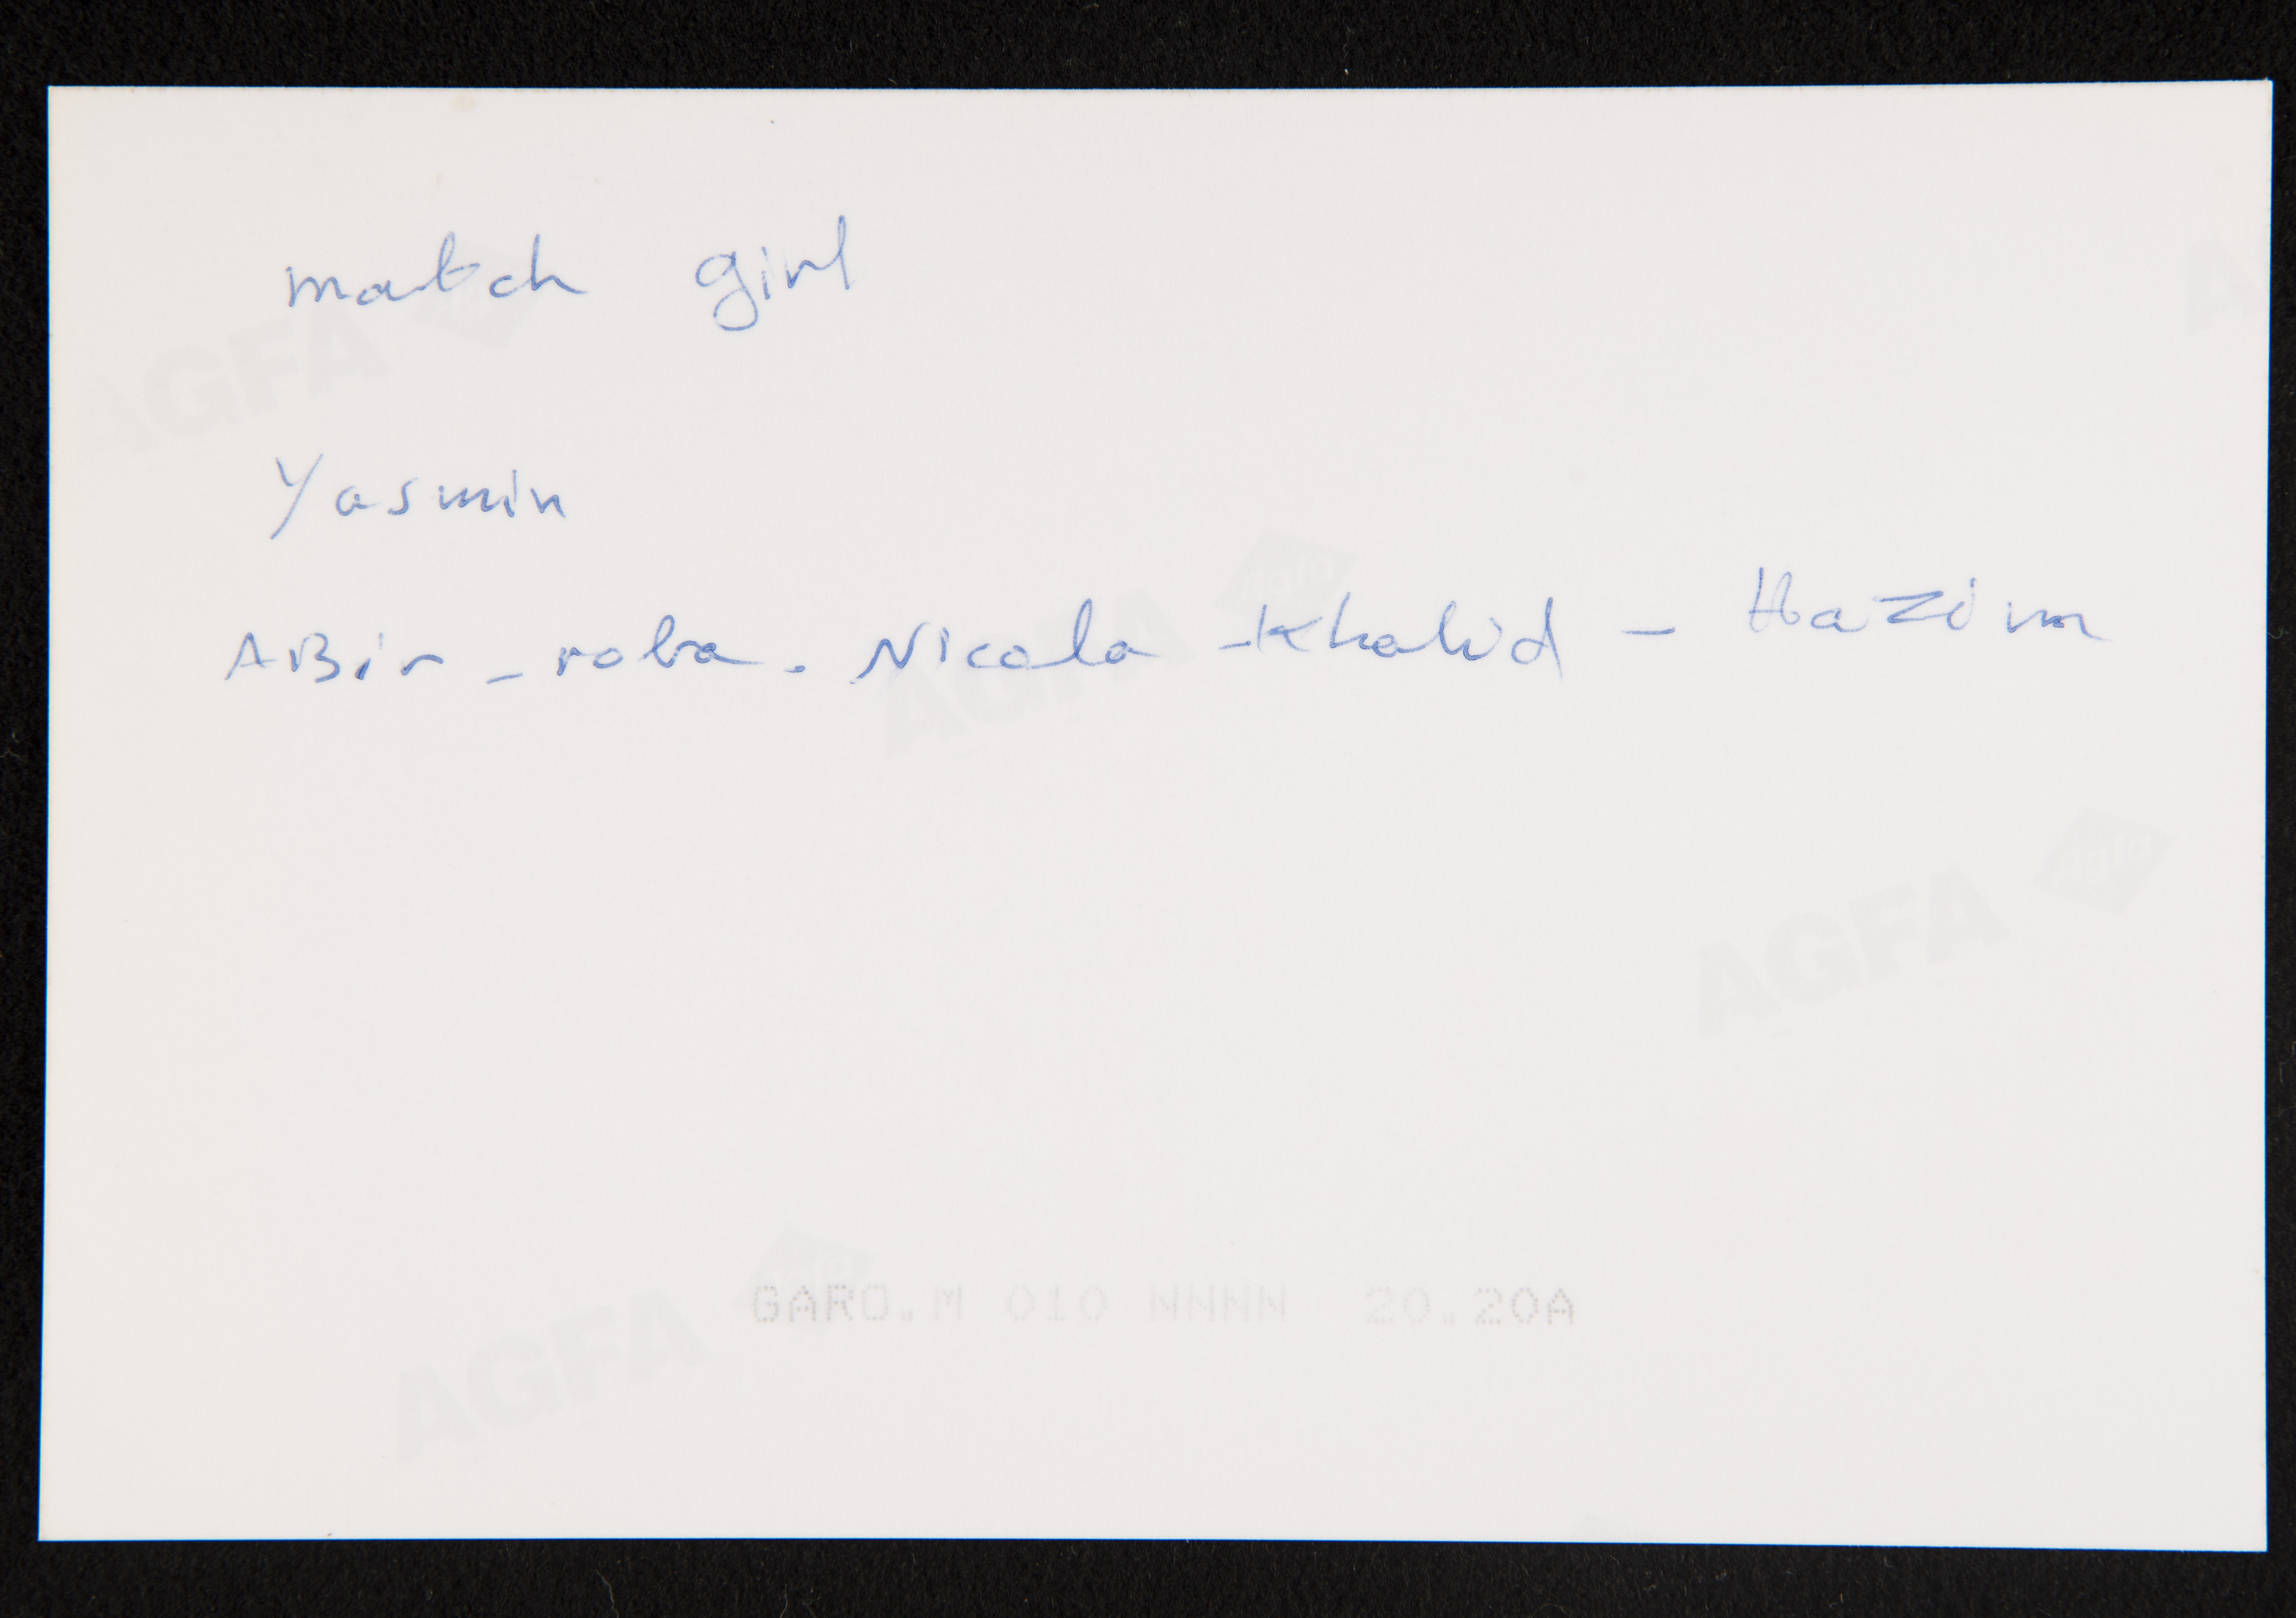 match girl
AGFA Agfa
Yasmin
ABir - roba - Nicola - Khalid - Hazim
AGFA Agfa
AGFA Agfa
GARO.M 010 NNNN 20.20A
AGFA Agfa